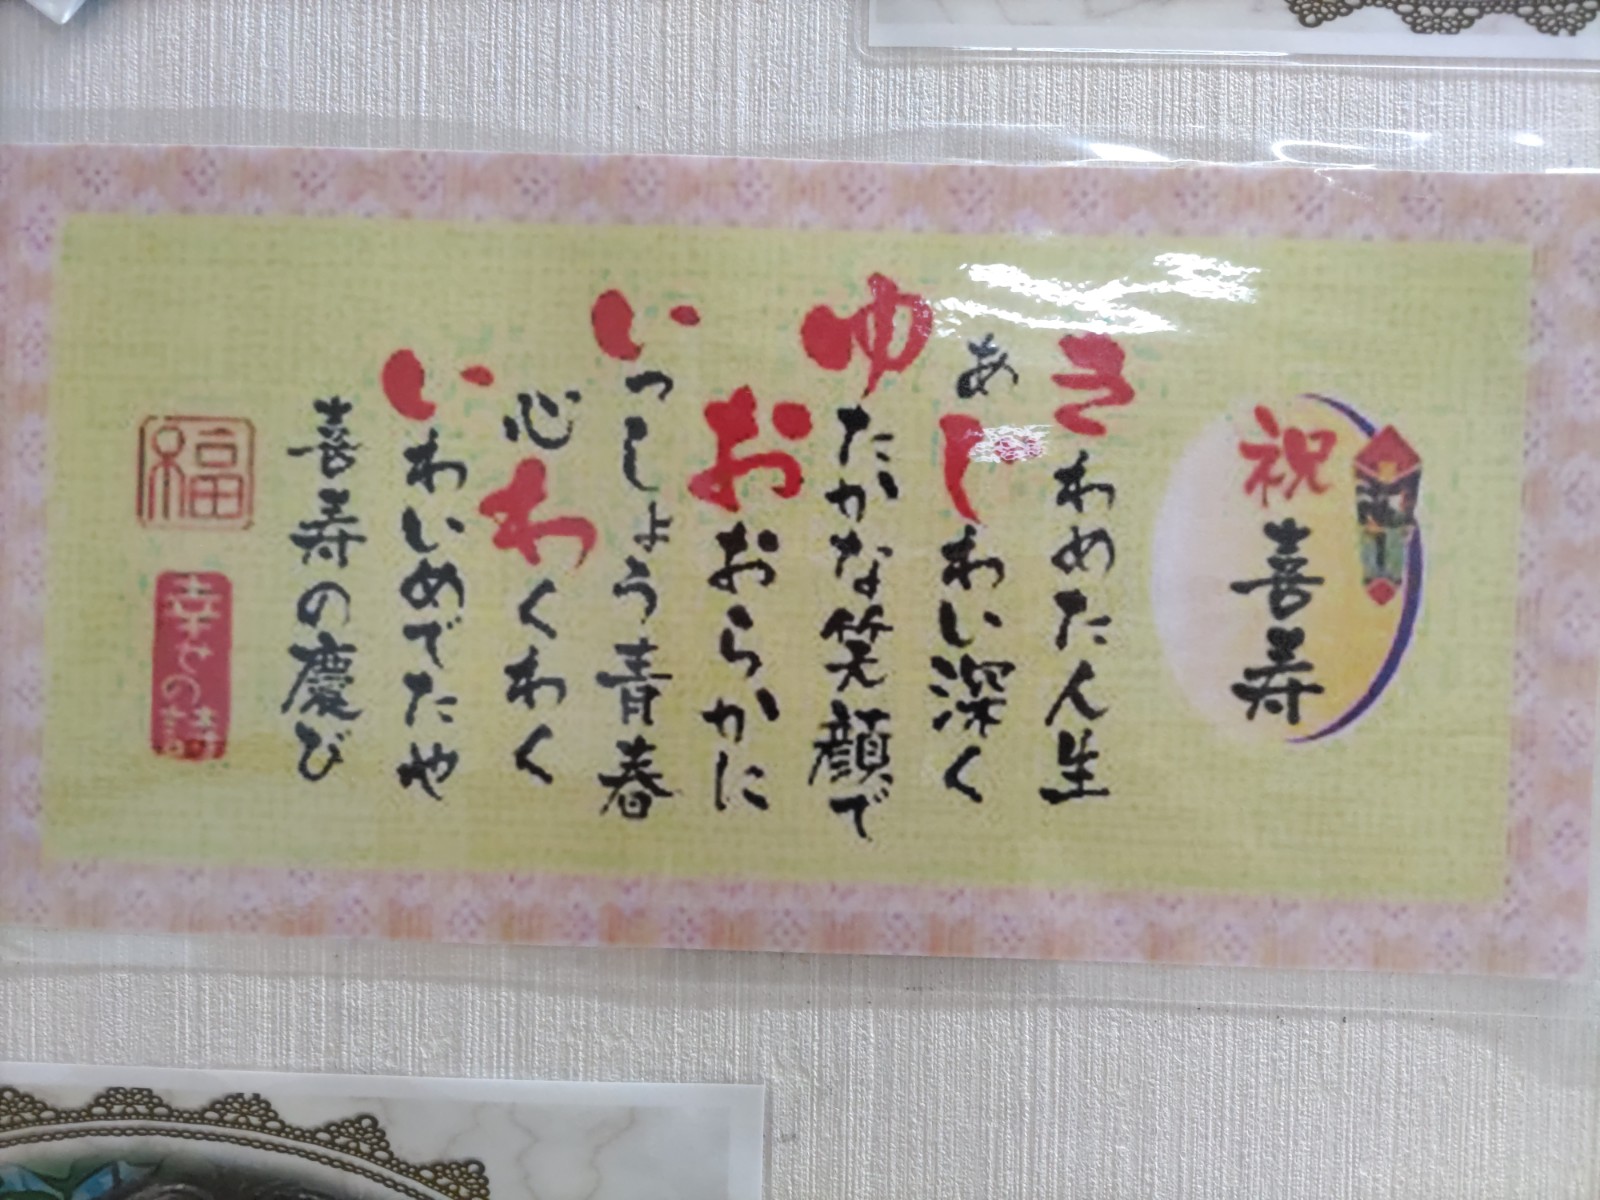 祝
喜寿
きわめた人生
あじわい深く
ゆたかな笑顔で
おおらかに
いっしょう青春
心わくわく
いわいめでたや
喜寿の慶び
福
幸せの詩